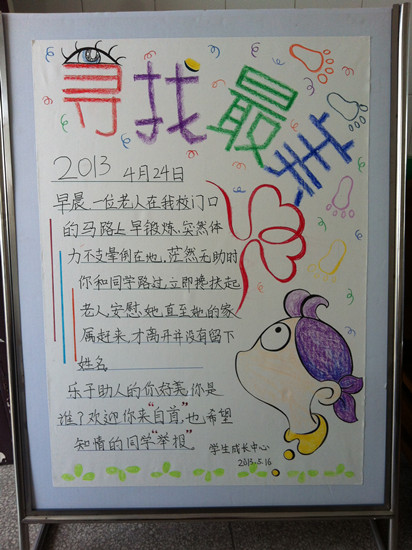 寻找最美
2013 4月24日
早晨一位老人在我校门口
的马路上早锻炼.突然体
力不支晕倒在地,茫然无助时
你和同学路过,立即搀扶起
老人,安慰她,直至她的家
属赶来,才离开并没有留下
姓名
乐于助人的你好美,你是
谁?欢迎你来"自首",也希望
知情的同学"举报"
学生成长中心
2013.5.16